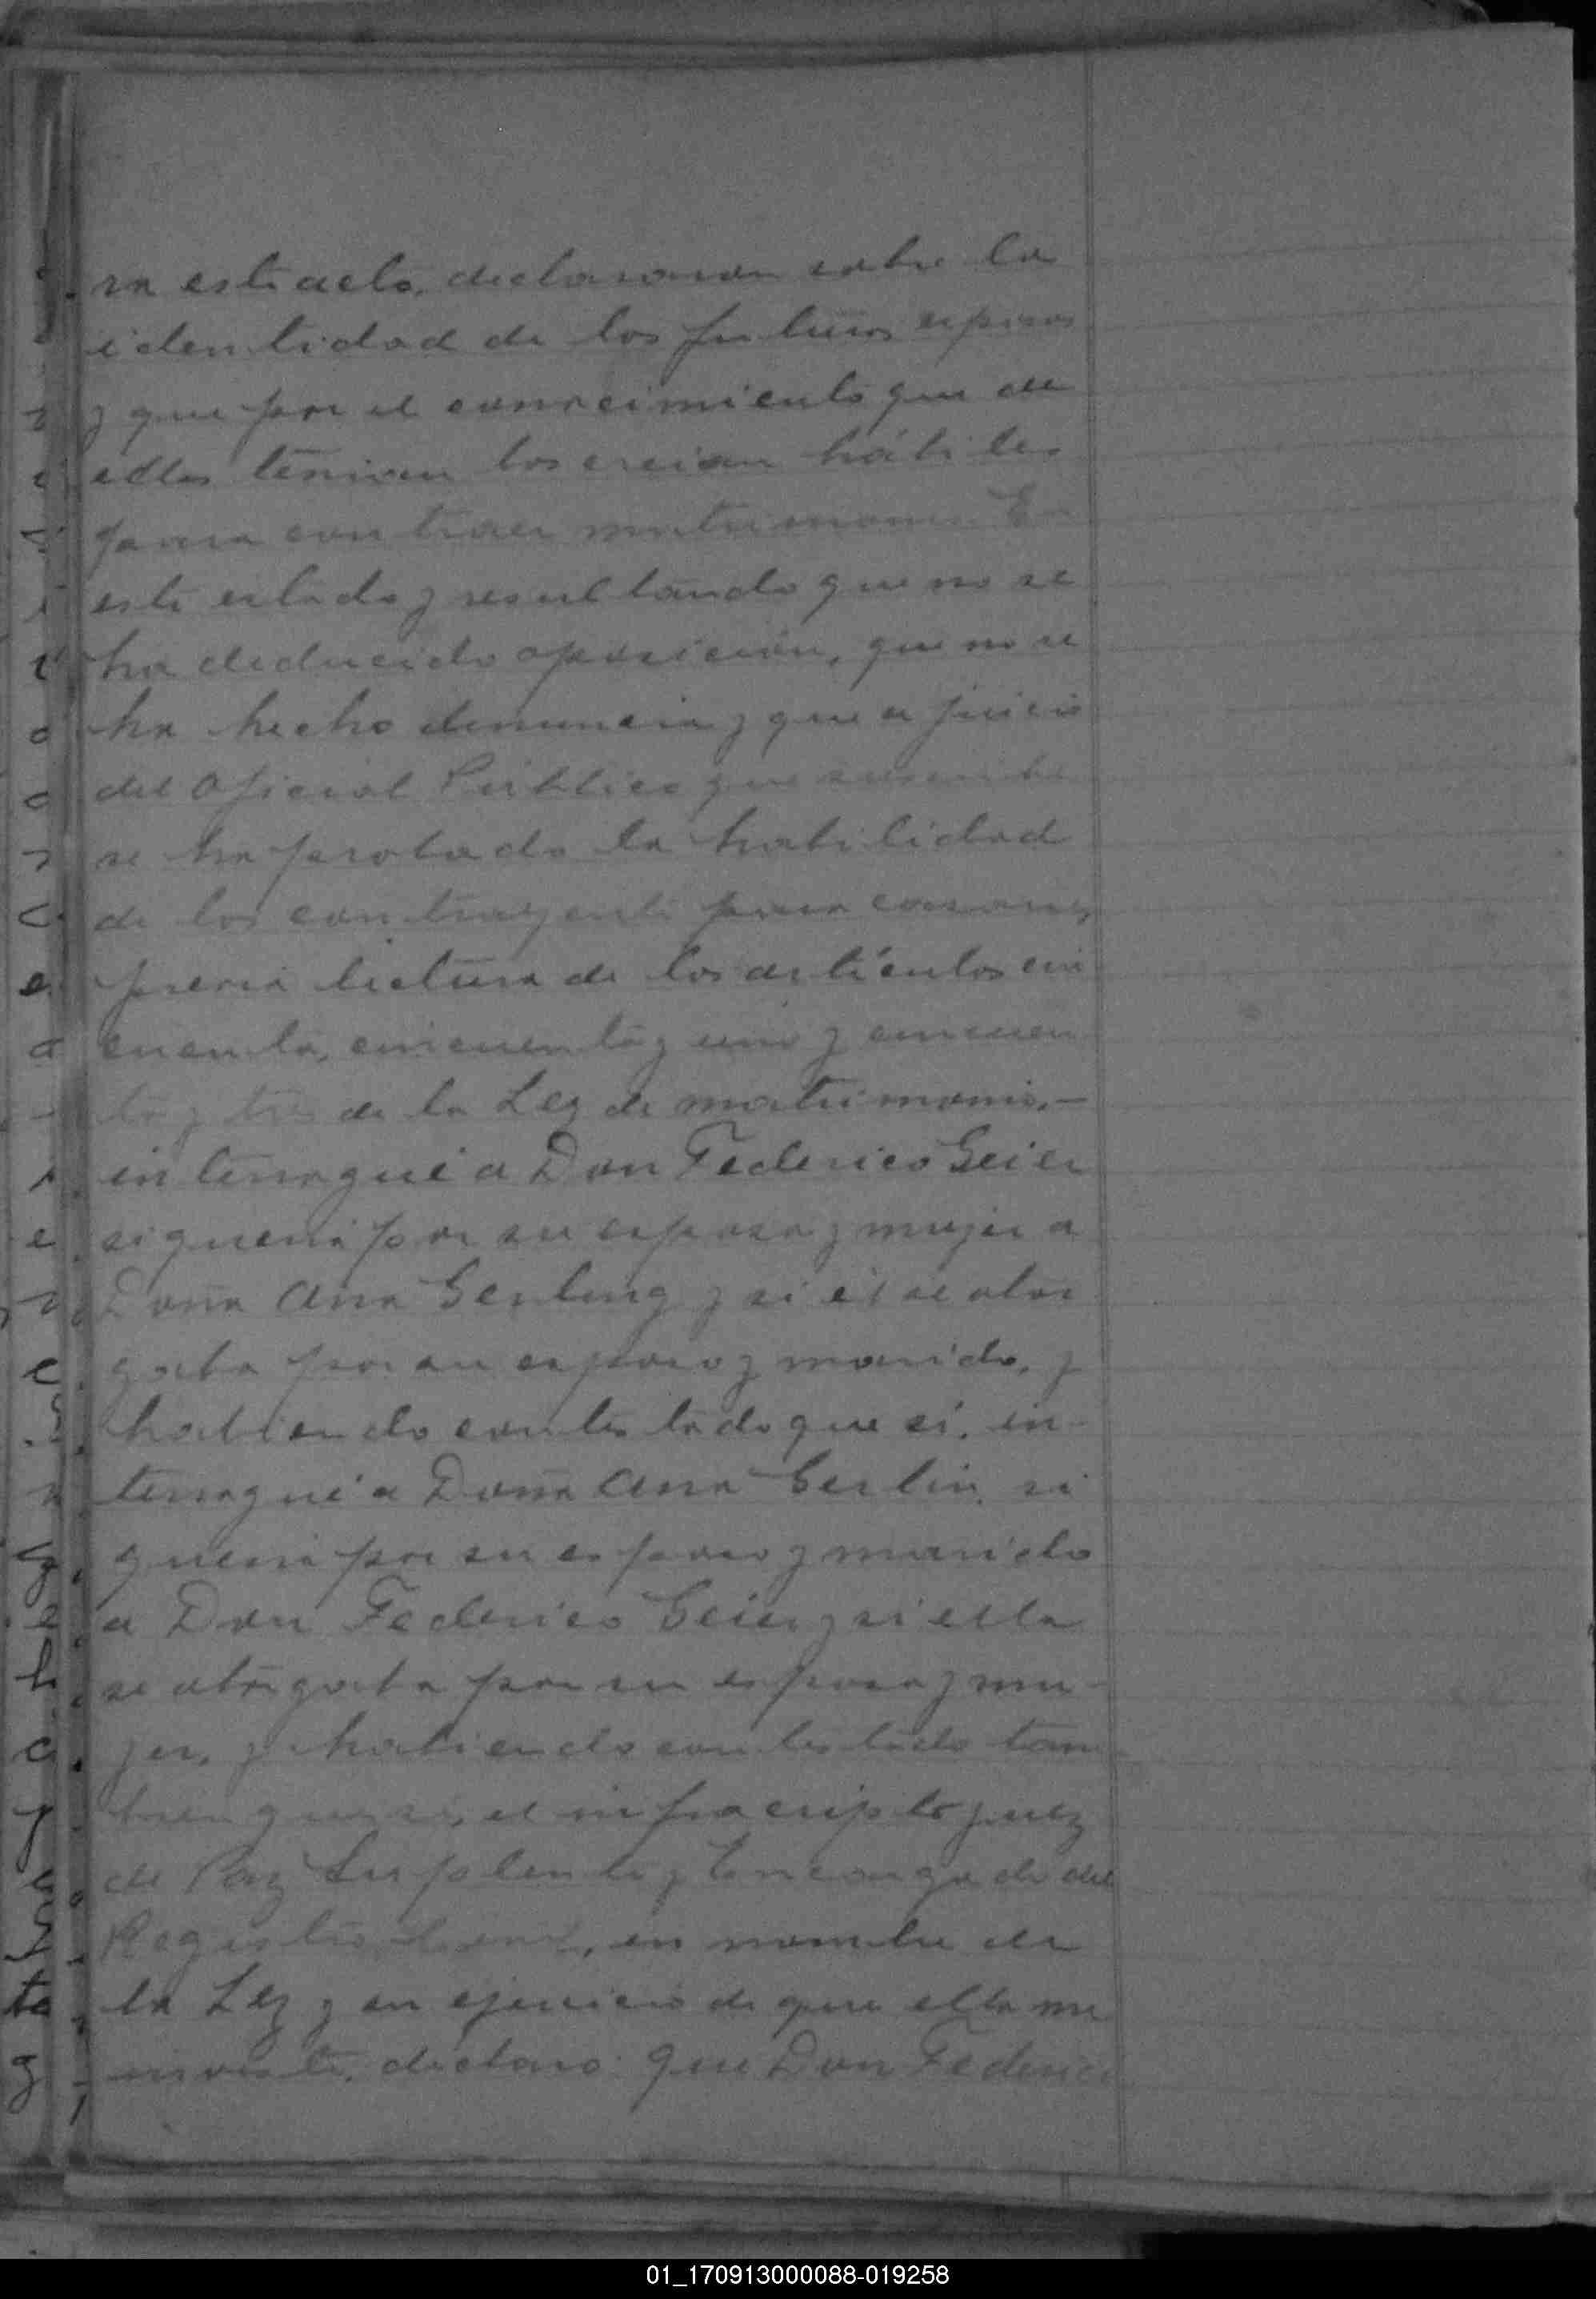 ra este acto, declararon sobre la
identidad de los futuros esposos
y que por el conocimiento que de
ellos tenian los creian hábiles
para contraer matrimonio. En
este estado y resultando que no se
ha deducido oposicion, que no se
ha hecho denuncia y que a juicio
del Oficial Público que suscribe
se ha probado la habilidad
de los contrayente para casarse,
previa lectura de los artículos cin
cuenta, cincuenta y uno y cincuen
ta y tres de la Ley de matrimonio,—
interrogué a Don Federico Geier
si queria por su esposa y mujer a
Doña Ana Gerling y si él se otor
gaba por su esposo y marido, y
habiendo contestado que si, in-
terrogué a Doña Ana Gerlin, si
queria por su esposo y marido
a Don Federico Geier y si ella
se otorgaba por su esposa y mu-
jer, y habiendo contestado tam
bien que si, el infrascripto Juez
de Paz Suplente y Encargado del
Registro Civil, en nombre de
la Ley y en ejercicio de que ella me
inviste, declaro: Que Don Federico
01_170913000088-019258